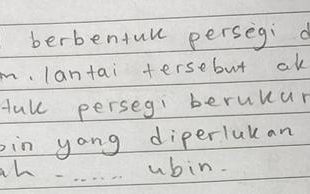 berbentuk persegi d
m. lantai tersebut ak
tuk persegi berukur
bin yang diperlukan
ah ...... ubin.